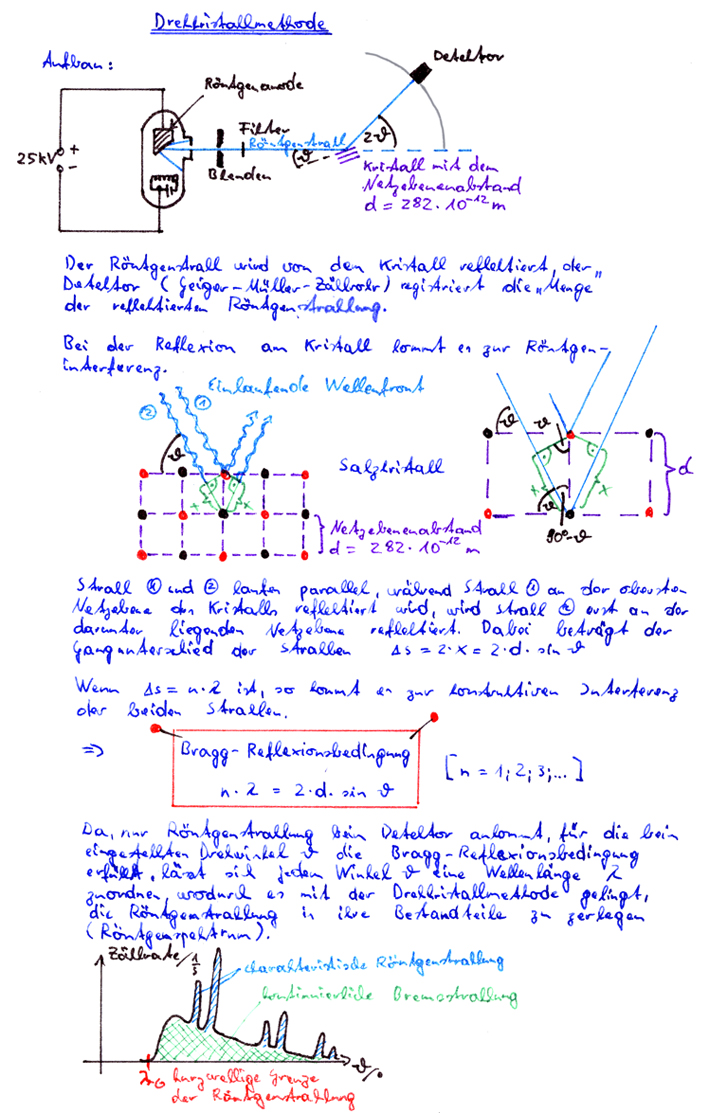 Drehkristallmethode
Aufbau:
Detektor
Röntgenanode
Filter
Röntgenstrahl
ϑ
2ϑ
25kV
+
-
Blenden
Kristall mit dem
Netzebenenabstand
d = 282 · 10⁻¹² m
Der Röntgenstrahl wird von dem Kristall reflektiert, der
Detektor (Geiger-Müller-Zählrohr) registriert die "Menge"
der reflektierten Röntgenstrahlung.
Bei der Reflexion am Kristall kommt es zur Röntgen-
interferenz.
Einlaufende Wellenfront
② ①
ϑ
x x
Salzkristall
Netzebenenabstand
d = 282 · 10⁻¹² m
ϑ ϑ
x x
d
ϑ
90°-ϑ
Strahl ① und ② laufen parallel, während Strahl ① an der obersten
Netzebene des Kristalls reflektiert wird, wird Strahl ② erst an der
darunter liegenden Netzebene reflektiert. Dabei beträgt der
Gangunterschied der Strahlen Δs = 2·x = 2·d·sin ϑ
Wenn Δs = n·λ ist, so kommt es zur konstruktiven Interferenz
der beiden Strahlen.
=> Bragg-Reflexionsbedingung
n·λ = 2·d·sin ϑ
[n = 1; 2; 3; ...]
Da, nur Röntgenstrahlung beim Detektor ankommt, für die beim
eingestellten Drehwinkel ϑ die Bragg-Reflexionsbedingung
erfüllt, lässt sich jedem Winkel ϑ eine Wellenlänge λ
zuordnen, wodurch es mit der Drehkristallmethode gelingt,
die Röntgenstrahlung in ihre Bestandteile zu zerlegen
(Röntgenspektrum).
Zählrate/ 1/s
charakteristische Röntgenstrahlung
kontinuierliche Bremsstrahlung
ϑ/°
λG kurzwellige Grenze
der Röntgenstrahlung